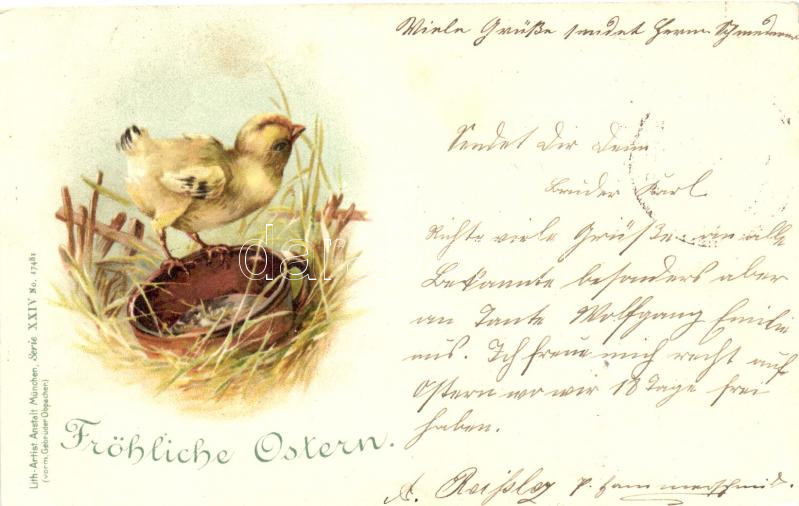 Viele Grüße sendet Herm.
Sendet Dir Dein
Bruder Karl
Richte viele Grüße an alle
Bekannte besonders aber
an Tante Wolfgang Emilie
aus. Ich freue mich recht auf
Ostern wo wir 18 Tage frei
haben.
A.
Fröhliche Ostern.
Lith.-Artist. Anstalt München, Serie XXIV No. 17481
(vorm. Gebrüder Obpacher)
dar